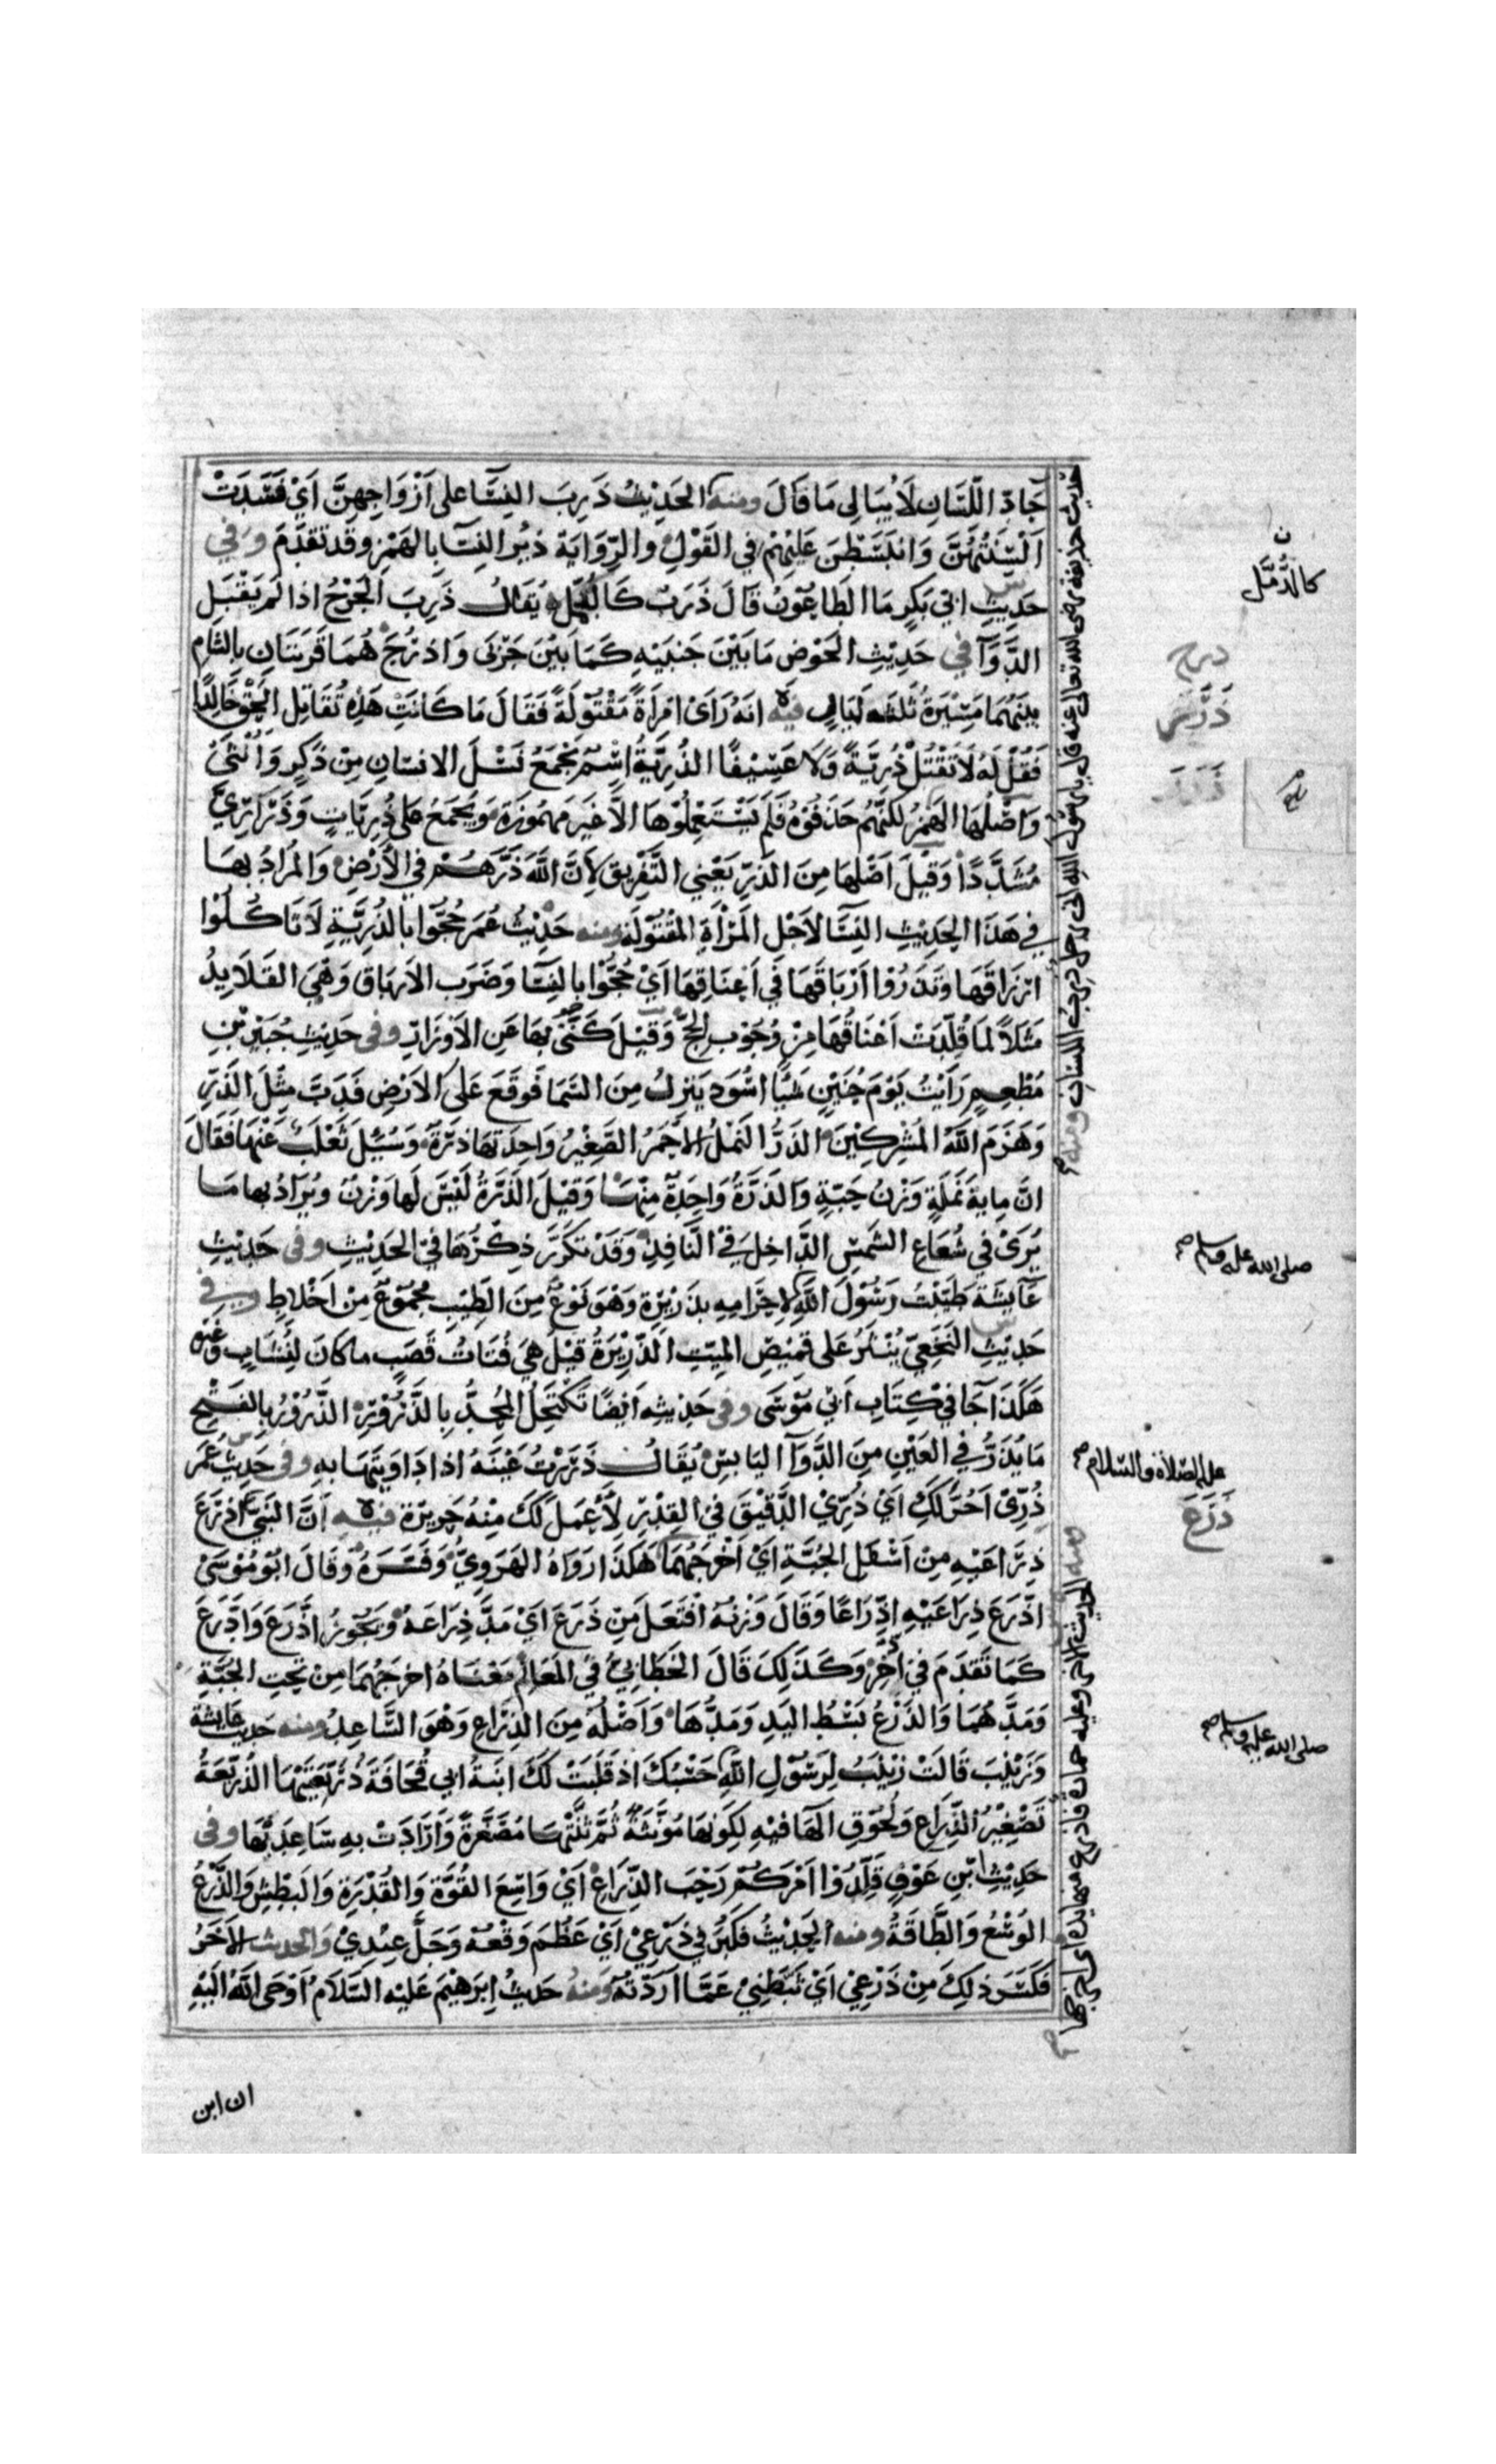 حَادّ اللِّسَانِ لَا يُبَالِى مَا قَالَ ومنه الحَدِيْثُ ذَرِبَ النِسَّا على اَزْوَاجِهِنَّ اَيْ فَسَدَتْ
اَلْسِنَتُهُنَّ وَانْبَسَطْنَ عَلَيْهِمْ في القَوْلِ والرِّوَايَة ذَئِرَ النِسَّا بالهَمْزِ وقد تقدَّمَ وفي
حَدِيثِ ابي بَكرٍ مَا الطَاعُوْنُ قَالَ ذَرَبٌ كَالدُّمَّلِ يُقَالُ ذَرِبَ الجُرْحُ اذا لَم يَقْبَلِ
الدَّوَآ في حَدِيْثِ الحَوْض مَا بَيْنَ جَنبَيْهِ كَمَا بَيْنَ جَرْبَى وَاذرُحَ هُمَا قَريَتَانِ بالشَّامِ
بينَهُمَا مَسِيْرَةُ ثَلثه لَيَالٍ فيه انهُ رَأَىْ امْرَاَةً مَقْتُوْلَةً فَقَالَ مَا كَانَتْ هَذِهِ تُقَاتِل الحَقْ خَالِدًا
فَقُلْ لَهُ لَا تَقْتُلْ ذُرِيَّةً وَلَا عَسِيْفًا الذُرِيَّةُ اسْم يَجْمَعُ نَسْلَ الانسَانِ مِنْ ذَكَرٍ وَاُنْثَىْ
وَاَصْلُهَا الهَمْزُ لكنَّهُم حَذَفُوْهُ فَلَم يَسْتَعْمِلُوْهَا الَّا غَيرَ مَهمُوْزَةٍ وَيُجمَعُ عَلى ذُرِيَّاتٍ وَذَرَارِيَّ
مُشَدَّدًا وَقِيْلَ اَصْلُهَا مِنَ الذَرِّ يَعْنِي التَّفْرِيق لِاَنَّ اللهَ ذَرَّهُمْ في الأَرْضِ وَالمُرَادُ بهَا
في هَذَا الحَدِيْثِ النِسَّا لاَجْلِ المَرْأَةِ المَقْتُوْلَةِ ومنه حَدِيْثُ عُمَرَ حُجُّوْا بالذُرِيَّةِ لَا تَاكُلُوْا
ارزَاقَهَا وتَذَرُوْا اَرْبَاقَهَا فِي اَعنَاقِهَا اَيْ حُجُّوْا بالنِسَا وَضَرَبَ الاَربَاق وَهْيَ القَلَايِدُ
مَثَلًا لمَا قُلِّدَتْ اَعْنَاقُهَا مِنْ وُجُوْبِ الحجِّ وَقِيْلَ كَنَّى بهَا عَنِ الاَوْزَارِ وفى حَدِيثِ جُبَيْرِ بْنِ
مُطْعِمٍ رَاَيْتُ يَوْمَ حُنَيْنٍ شَيْأً اَسْوَدَ يَنزِلُ مِنَ السَّمَا فَوقَعَ عَلَى الاَرْضِ فَدَبَّ مِثْلَ الذَّرِّ
وَهَزَمَ اللهُ المُشْرِكِيْنَ الذَرُّ النَملُ الاحْمَرُ الصَّغِيْرُ وَاحِدَتهَا ذرَّةٌ وَسُئِلَ ثَعْلَبٌ عَنْهَا فَقَالَ
انَّ مِايةَ نَمْلَةٍ وَزْنُ حَبّةٍ وَالذَرَّةُ وَاحِدَةٌ مِنْهَا وَقِيْلَ الذَرَّةُ لَيْسَ لَها وَزْنٌ وَيُرَادُ بها مَا
يُرَىْ في شُعَاعِ الشَّمسِ الدَّاخِلِ فِيْ النَّافِذِ وَقَدْ تكَرَّرَ ذِكْرُهَا في الحَدِيْثِ وفى حَدِيْثِ
عَآيشَةَ طَيَّبْتُ رَسُوْلَ اللهِ لِاحْرَامِهِ بذَرِيْرَةٍ وَهْوَ نَوْعٌ مِنَ الطِّيْبِ مَجْمُوْعٌ مِنْ اَخْلَاطٍ وفي
حَدِيْثِ النَخَعِيّ يُنْثَرُ عَلَى قَمِيْصِ المِيّتِ الذَرِيْرَةُ قِيْلَ هيَ فُتَاتُ قَصَبٍ ما كانَ لِنُشَابٍ وغيره
هَكَذَا جَآ فِيْ كِتَابِ اَبي مُوْسَى وفى حَدِيْثِهِ اَيْضًا تَكْتَحِلُ المُحِدُّ بِالذَّرُوْرِ الذَّرُوْرُ بِالفَتْحِ
مَا يُذَرُّ في العَيْنِ مِنَ الدَّوَآ اليَابِسِ يُقَالُ ذَرَرْتُ عَيْنَهُ اذا دَاوَيتَهَا بِهِ وفى حَدِيث عُمَر
ذُرِّىْ اَحُرَّ لَكِ اَيْ ذُرِّيْ الدَّقِيْقَ في القِدْرِ لِأَعْمَلَ لَكَ مِنْهُ حَرِيرَةً فيه اَنَّ النَبيَّ اذْرَعَ
ذِرَاعَيْهِ مِنْ اَسْفَلِ الجُبَّةِ اَيْ اَخْرَجَهُمَا هَكَذَا رَوَاهُ الهَرَوِيُّ وَفَسَّرَهُ وَقَالَ ابُوْ مُوْسَىْ
اذَّرَعَ ذِرَاعَيْهِ اذِّرَاعًا وَقَالَ وَزْنُهُ افْتَعَلَ مِنْ ذَرَعَ اَيْ مَدَّ ذِرَاعَهُ وَيَجُوْزُ اذَّرَعَ وَادَّرَعَ
كَمَا تَقدَمَ في اذَّخَرَ وَكَذَلِكَ قَالَ الخَطَابِيُّ فِي المَعَالِمِ مَعْنَاهُ اخرَجَهُمَا مِنْ تَحتِ الجُبَّةِ
وَمَدَّهُمَا وَالذَرْعُ بَسْطُ اليَدِ وَمَدُّهَا وَاَصْلُهُ مِنَ الذِرَاعِ وَهْوَ السَّاعِدُ ومنه حَدِيث عَايشَة
وَزَيْنَبَ قَالَتْ زَيْنَبُ لِرَسُوْلِ اللهِ حَسْبُكَ اذ قَلَبَتْ لَكَ ابنَةُ ابي قُحَافَةَ ذُرَيّعَتَيْهَا الذُرَيّعَةُ
تَصْغِيْرُ الذِّرَاعِ وَلُحُوْقِ الهَآ فِيْهِ لِكَوْنِهَا مُؤَنَّثَةً ثُمَّ ثَنَّتْهَا مُصَغَّرَةً وَاَرَادَتْ بهِ سَاعِدَيْهَا وفى
حَدِيْثِ ابْنِ عَوْفٍ قَلِّدُوْا اَمْرَكُمْ رَحْبَ الذِّرَاعِ اَيْ وَاسِعَ القُوَّةِ وَالقُدْرَةِ وَالبَطْشِ وَالذَّرْعُ
الوُسْعُ وَالطَّاقَةُ ومنه الحَدِيْثُ فكَبُرَ في ذَرْعِيْ اَيْ عَظُمَ وَقْعُهُ وَجَلَّ عِنْدِيْ وَالحَديث الآخَرُ
فَكَسَرَ ذلِكَ مِنْ ذَرْعِيْ اَيْ ثَبَّطَنِيْ عَمَّا اَرَدْتُهُ وَمنهُ حَدِيْثُ اِبرَهِيْمَ عَلَيْهِ السَّلَامُ اَوْحَى اللهُ اليْهِ
ان ابن
حديث حذيفة رضى الله تعالى عنه قال يا رسول الله انى رجل ذرب اللسان ومنه
ومنه الحديث الاخر وعليه جمازة فاذرع منها يده اى اخرجها
كالدُّمَّل
ذرح
ذَرَرَ
صلى الله عليه وسلم صح
عليه الصلاة والسلام صح
ذَرَعَ
صلى الله عليه وسلم صح